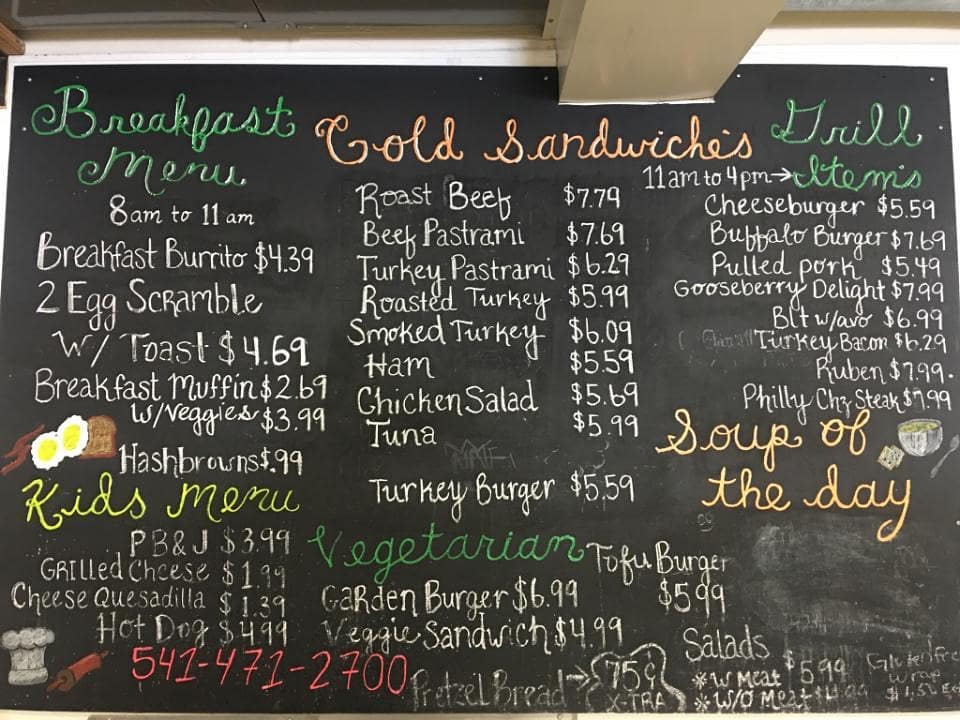 Breakfast
Menu
8am to 11am
Breakfast Burrito $4.39
2 Egg Scramble
W/ Toast $4.69
Breakfast Muffin $2.69
w/Veggies $3.99
Hashbrowns $.99
Kids Menu
PB&J $3.99
GRilled Cheese $1.99
Cheese Quesadilla $1.39
Hot Dog $4.99
541-471-2700
Cold Sandwiche's
Roast Beef $7.79
Beef Pastrami $7.69
Turkey Pastrami $6.29
Roasted Turkey $5.99
Smoked Turkey $6.09
Ham $5.59
Chicken Salad $5.69
Tuna $5.99
Turkey Burger $5.59
Vegetarian
GaRden Burger $6.99
Veggie Sandwich $4.99
Tofu Burger
$5.99
Pretzel Bread → 75¢
X-TRA
Grill
11am to 4pm → Item's
Cheeseburger $5.59
Buffalo Burger $7.69
Pulled pork $5.49
Gooseberry Delight $7.99
Blt w/avo $6.99
Turkey Bacon $6.29
Ruben $7.99
Philly Chz Steak $7.99
Soup of
the day
Salads
*W Meat $5.99
*W/O Meat $4.99
Gluten free
wrap